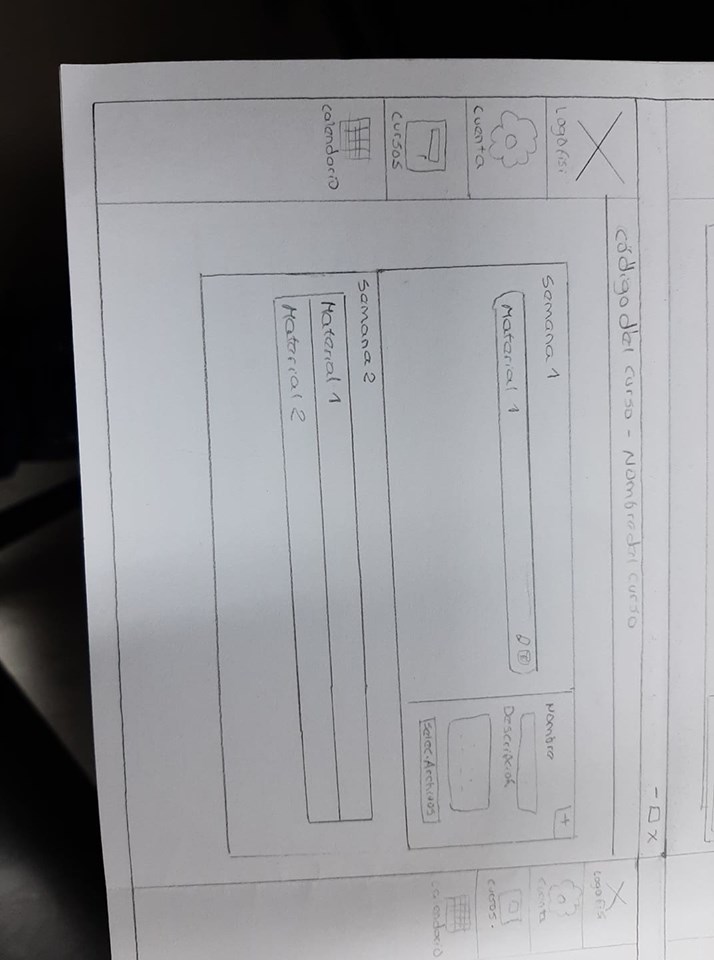 Código del curso - Nombre del curso
Logo fisi
Cuenta
Cursos
Calendario
Semana 1
Material 1
Nombre
Descripción
Selec. Archivos
Semana 2
Material 1
Material 2
Logo fisi
Cuenta
Cursos.
Calendario